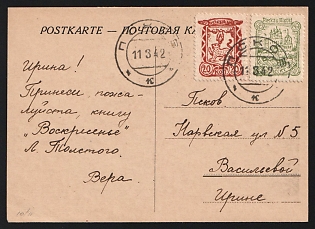 POSTKARTE — ПОЧТОВАЯ КА
11 3 42
11 3 42
60
Ирина!
Принеси, пожа-
луйста, книгу
„Воскресенье"
Л. Толстого.
Вера.
Псков
Нарвская ул N 5
Васильевой
Ирине